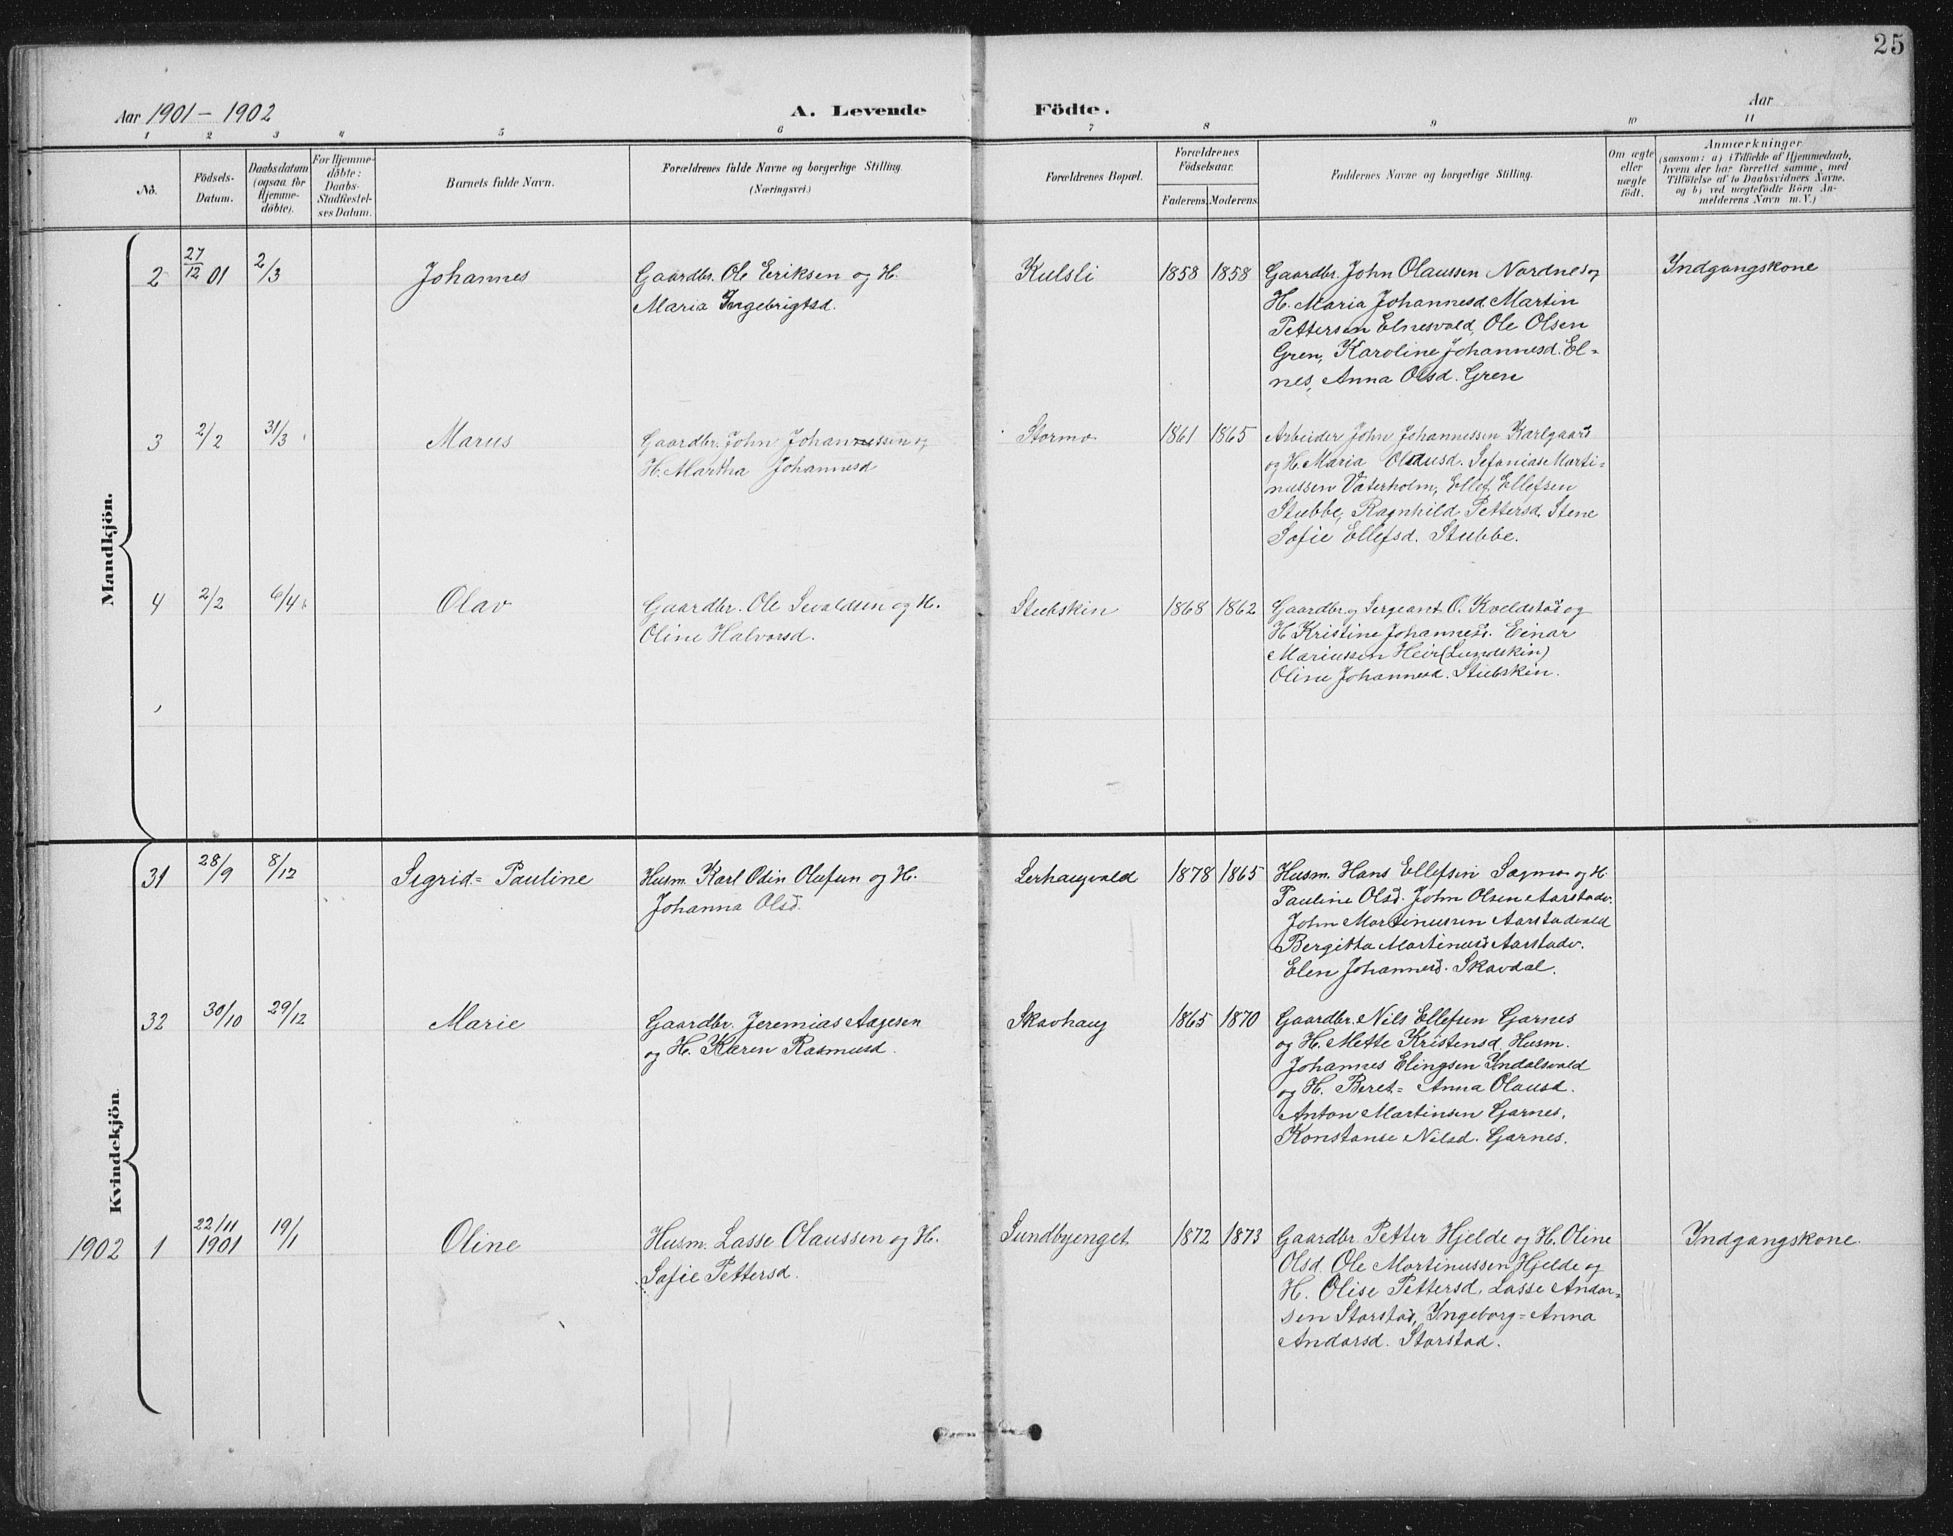 25
Aar 1901 - 1902
A. Levende Födte.
Aar
1 2 3 4 5 6 7 8 9 10 11
No.
Födsels-Datum.
Daabsdatum (ogsaa for Hjemme-döbte).
For Hjemme-döbte: Daabs-Stadfæstel-ses Datum.
Barnets fulde Navn.
Forældrenes fulde Navne og borgerlige Stilling.
(Næringsvei.)
Forældrenes Bopæl.
Forældrenes Födselsaar.
Faderens. Moderens.
Faddernes Navne og borgerlig Stilling.
Om ægte eller uægte födt.
Anmærkninger
(saasom: a) i Tilfælde af Hjemmedaab,
hvem der har forrettet samme, med
Tilföielse af to Daabsvidners Navne,
og b) ved uægtefödte Börn An-
melderens Navn m. V.)
Mandkjön.
2 27/12 01 2/3 Johannes
Gaardbr. Ole Eriksen og H.
Maria Ingebrigtsd.
Kulsli 1858 1858
Gaardbr. John Olaussen Nordnes og
H. Maria Johannesd. Martin
Pettersen Elnesvald, Ole Olsen
Gren, Karoline Johannesd. El-
nes, Anna Olsd. Gren
Indgangskone
3 2/2 31/3 Marus
Gaardbr. John Johannessen og
H. Martha Johannesd
Stormo 1861 1865
Arbeider John Johannessen Karlgaard
og H. Maria Olausd. Sefanias Marti-
nussen Vaterholm, Ellef Ellefsen
Stubbe, Ragnhild Pettersd. Stene
Sofie Ellefsd. Stubbe.
4 2/2 6/4 Olav
Gaardbr. Ole Sevaldsen og H.
Oline Halvorsd.
Stubskin 1868 1862
Gaardbr. og Sergeant O. Kveldstad og
H. Kristine Johannesd. Einar
Mariussen Heir (Lundskin)
Oline Johannesd. Stubskin.
Kvindekjön.
31 28/9 8/12 Sigrid= Pauline
Husm. Karl Odin Olufsen og H.
Johanna Olsd.
Lerhaugvald 1878 1865
Husm. Hans Ellefsen Sagmo og H.
Pauline Olsd. John Olsen Aarstadv.
John Martinussen Aarstadvald
Bergitta Martinusd Aarstadv.
Elen Johannesd. Skavdal.
32 30/10 29/12 Marie
Gaardbr. Jeremias Aagesen
og H. Karen Rasmusd.
Skavhaug 1865 1870
Gaardbr. Nils Ellefsen Garnes
og H. Mette Kristensd. Husm.
Johannes Elingsen Yndalsvald
og H. Beret= Anna Olausd.
Anton Martinsen Garnes,
Konstanse Nilsd. Garnes.
1902 1 22/11 1901 19/1 Oline
Husm. Lasse Olaussen og H.
Sofie Pettersd.
Sundbyenget 1872 1873
Gaardbr. Petter Hjelde og H. Oline
Olsd. Ole Martinussen Hjelde og
H. Olise Pettersd. Lasse Andor-
sen Storstad, Ingeborg= Anna
Andorsd. Storstad.
Indgangskone.